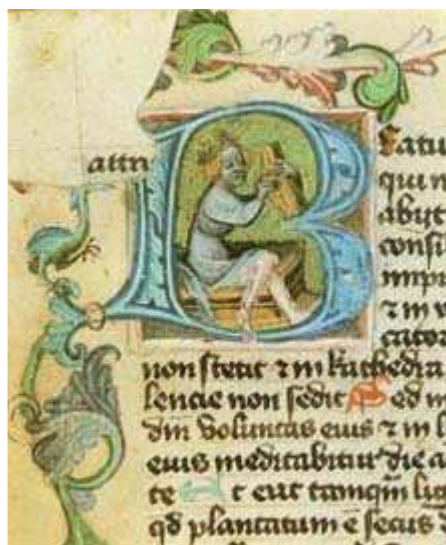 attn
Beatu
qui
abijt
consi
impi
⁊ in v
cator
non stetit ⁊ in kathedra
lencie non sedit Sed in
dm̄ voluntas eius ⁊ in l
eius meditabitur die a
te Et erit tamqm̄ lig
qd̄ plantatum ē secus d